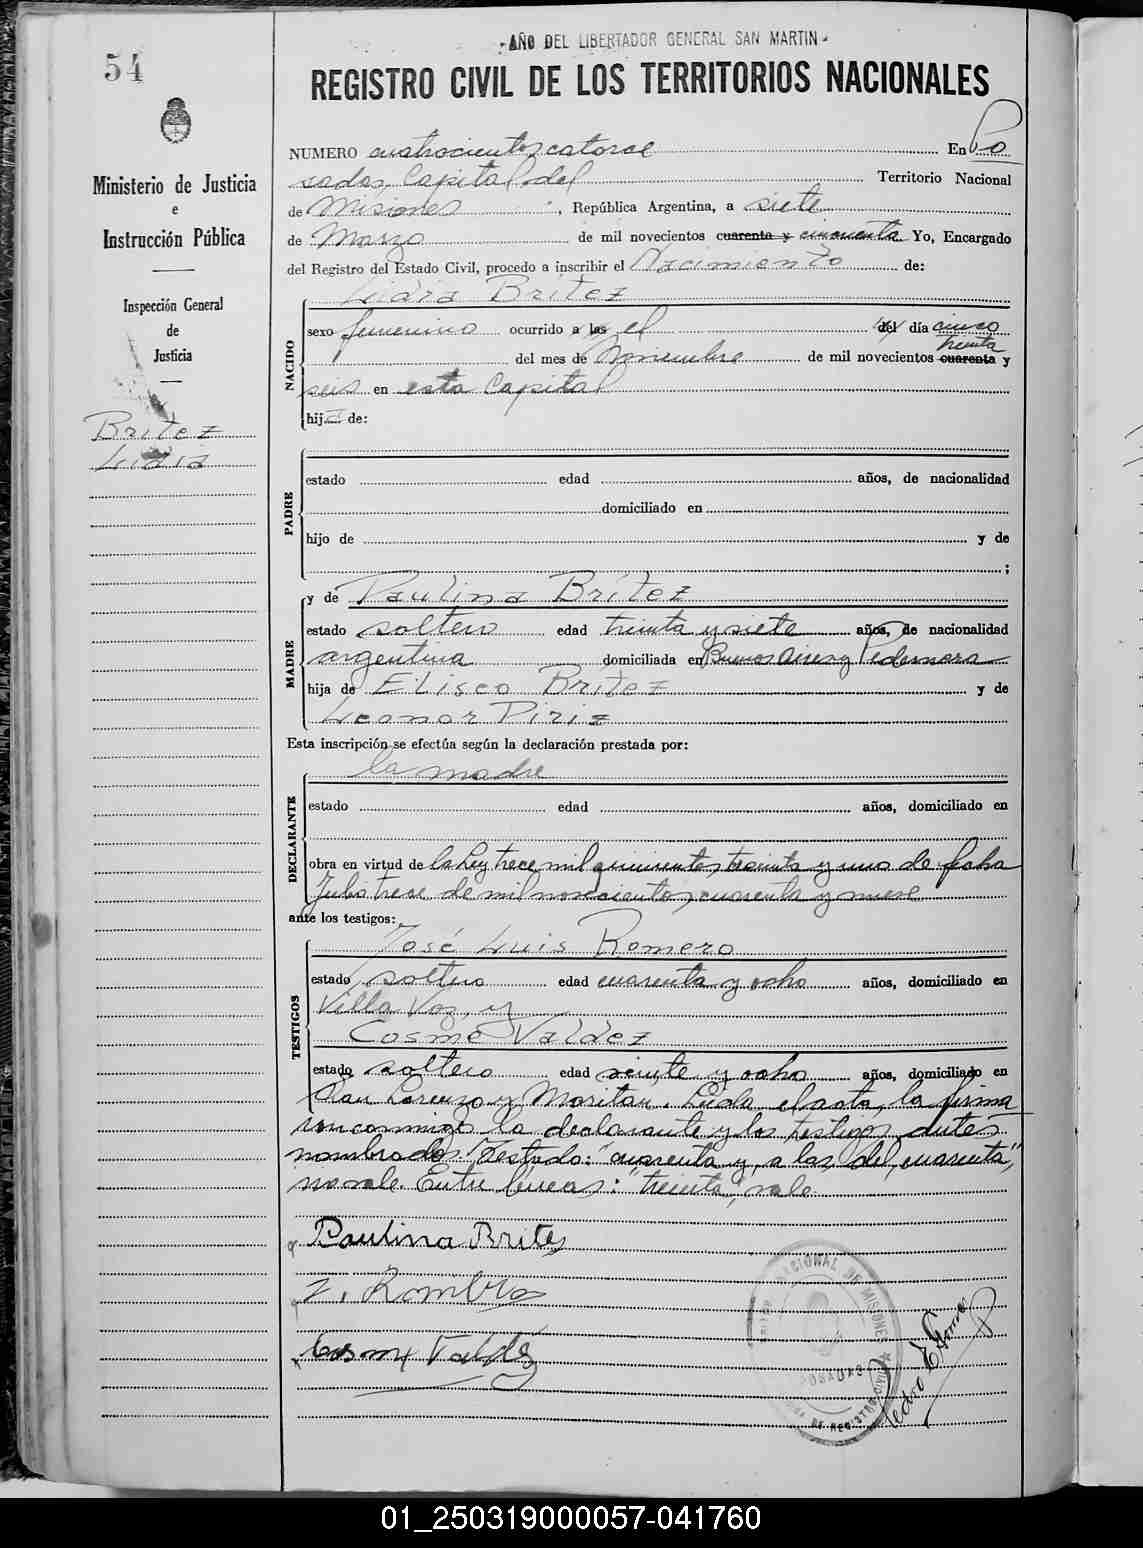 -AÑO DEL LIBERTADOR GENERAL SAN MARTIN-
54
REGISTRO CIVIL DE LOS TERRITORIOS NACIONALES
Ministerio de Justicia
e
Instrucción Pública
Inspección General
de
Justicia
Britez
Lidia
NUMERO cuatrocientos catorce En Po
sadas, Capital del Territorio Nacional
de Misiones, República Argentina, a siete
de Marzo de mil novecientos cuarenta y cincuenta Yo, Encargado
del Registro del Estado Civil, procedo a inscribir el Nacimiento de:
NACIDO
Lidia Britez
sexo femenino ocurrido a las el del día cinco
treinta
del mes de Noviembre de mil novecientos cuarenta y
seis en esta Capital
hija de:
PADRE
estado edad años, de nacionalidad
domiciliado en
hijo de y de
;
MADRE
y de Paulina Britez
estado soltero edad treinta y siete años, de nacionalidad
argentina domiciliada en Buenos Aires y Pedernera
hija de Eliseo Britez y de
Leonor Piriz
Esta inscripción se efectúa según la declaración prestada por:
DECLARANTE
la madre
estado edad años, domiciliado en
obra en virtud de la Ley trece mil quinientos treinta y uno de fecha
Julio trece de mil novecientos cuarenta y nueve
ante los testigos:
TESTIGOS
José Luis Romero
estado soltero edad cuarenta y ocho años, domiciliado en
Villa y
Cosme Valdez
estado soltero edad veinte y ocho años, domiciliado en
San Lorenzo y Moritan. Leída el acta, la firma
con conmigo la declarante y los testigos antes
nombrados Testado: "cuarenta y, a las, del, cuarenta",
no vale. Entre líneas: "treinta", vale.
Paulina Brites
Cosme Valdéz
NACIONAL DE MISIONES
POSADAS
DE REGISTRO
Pedro E
01_250319000057-041760